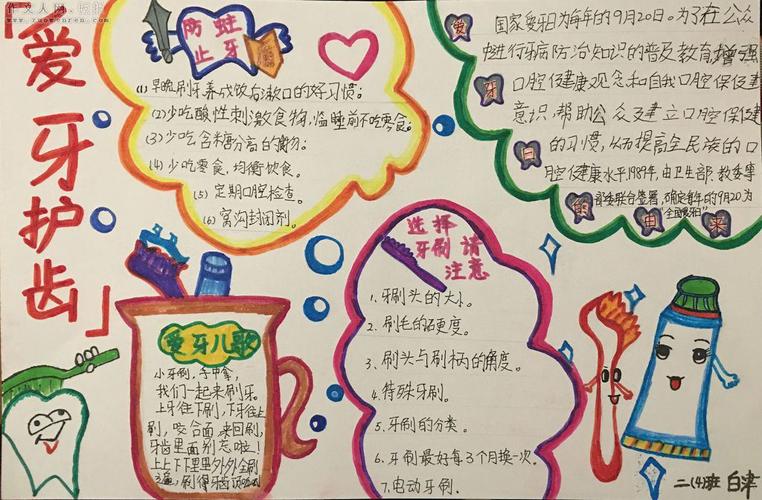 「爱牙护齿」
防蛀
止牙
(1) 早晚刷牙养成饭后漱口的好习惯;
(2) 少吃酸性刺激食物,临睡前不吃零食;
(3) 少吃含糖分高的食物;
(4) 少吃零食,均衡饮食。
(5) 定期口腔检查。
(6) 窝沟封闭剂。
爱牙日的由来
国家爱牙日为每年的9月20日。为了在公众
中进行牙病防治知识的普及教育,增强
口腔健康观念和自我口腔保健
意识,帮助公众建立口腔保健
的习惯,从而提高全民族的口
腔健康水平,1989年,由卫生部、教委等
部委联合签署,确定每年的9月20为
"全国爱牙日"
选择
牙刷請
注意
1、牙刷头的大小。
2、刷毛的硬度。
3、刷头与刷柄的角度。
4、特殊牙刷。
5、牙刷的分类。
6、牙刷最好每3个月换一次。
7、电动牙刷.
爱牙儿歌
小牙刷,手中拿,
我们一起来刷牙。
上牙往下刷,下牙往上
刷,咬合面,来回刷,
牙齿里面别忘啦!
上上下下里里外外全刷
刷得牙齿
二(4)班 白津